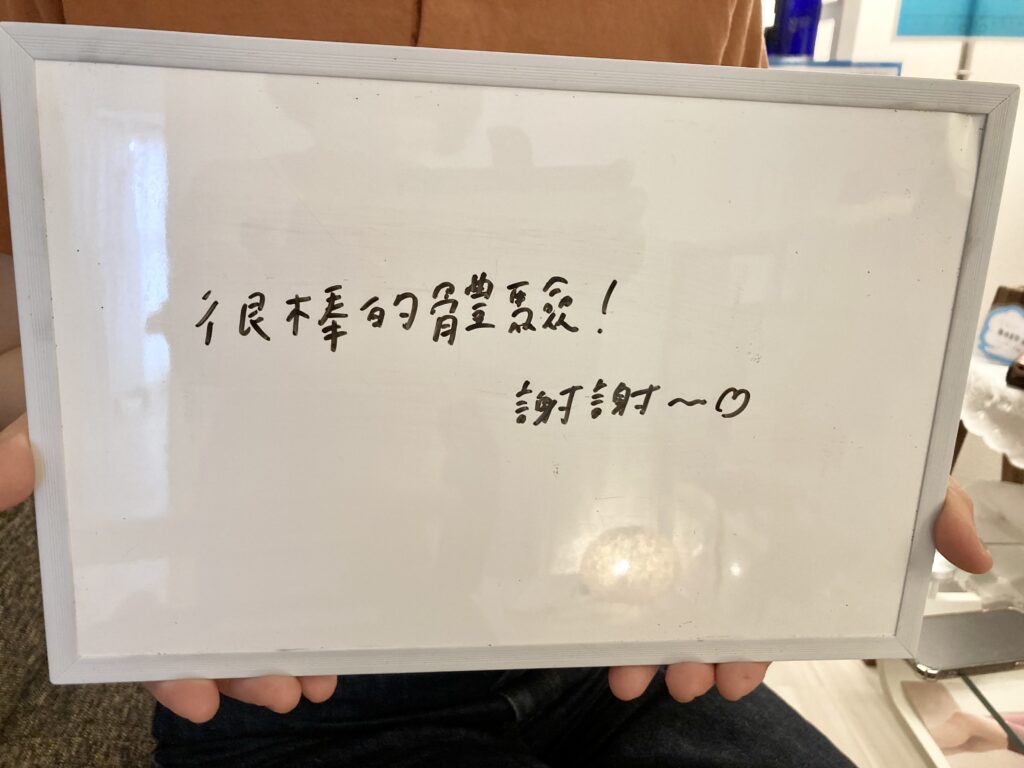 很棒的體驗!
謝謝~♡